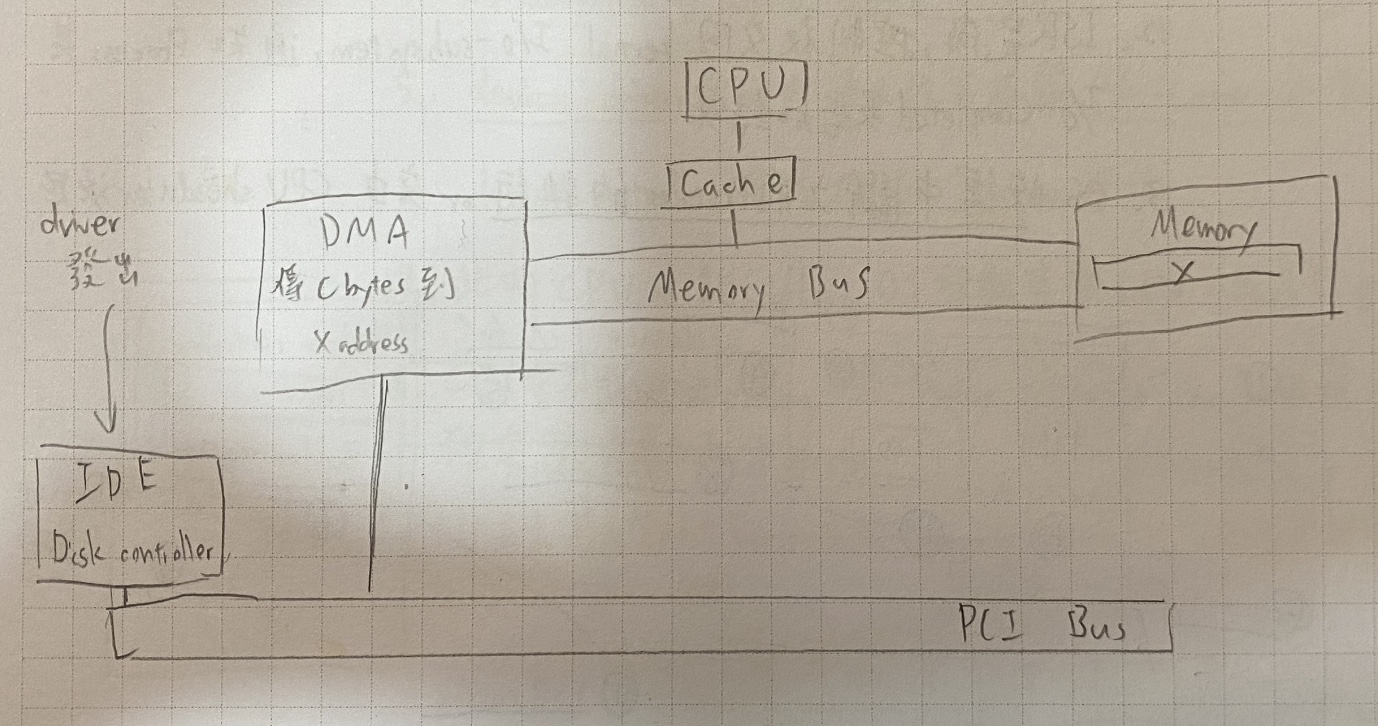 CPU
Cache
driver
發出
DMA
傳 C bytes 到
X address
Memory Bus
Memory
X
IDE
Disk controller
PCI Bus